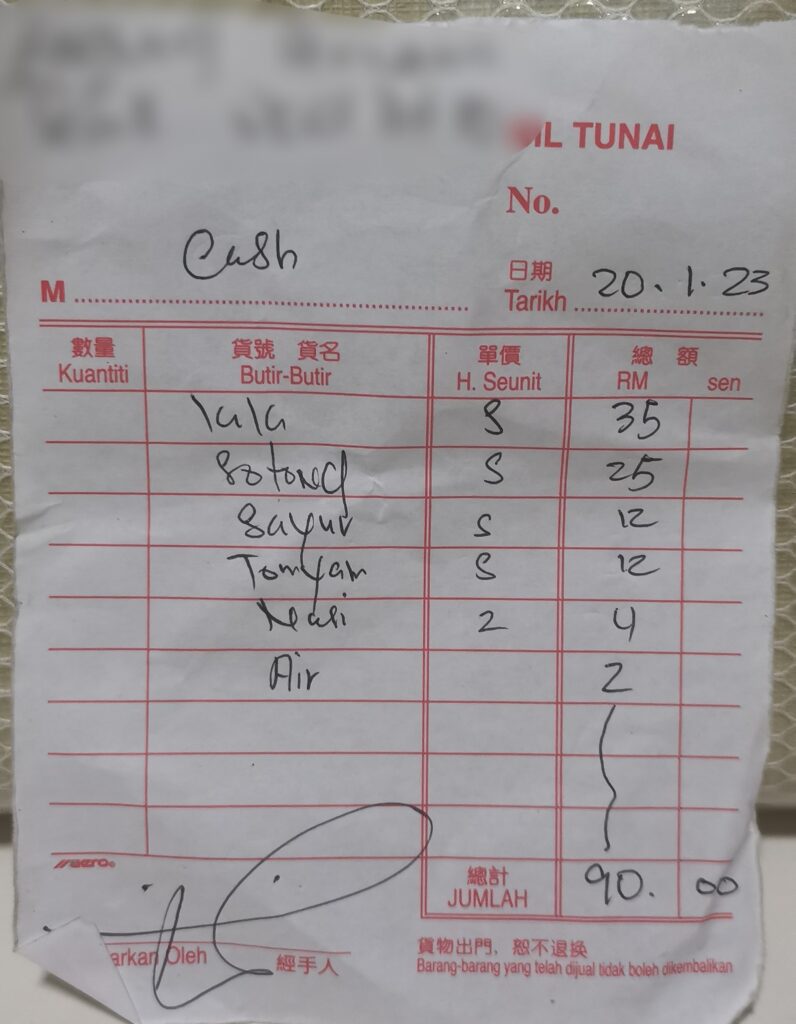 BIL TUNAI
No.
Cash
M
日期
Tarikh 20.1.23
數量 貨號 貨名 單價 總額
Kuantiti Butir-Butir H. Seunit RM sen
lala S 35
Sotong S 25
Sayur S 12
Tomyam S 12
Nasi 2 4
Air 2
總計
JUMLAH 90. 00
arkan Oleh 經手人
貨物出門，恕不退換
Barang-barang yang telah dijual tidak boleh dikembalikan